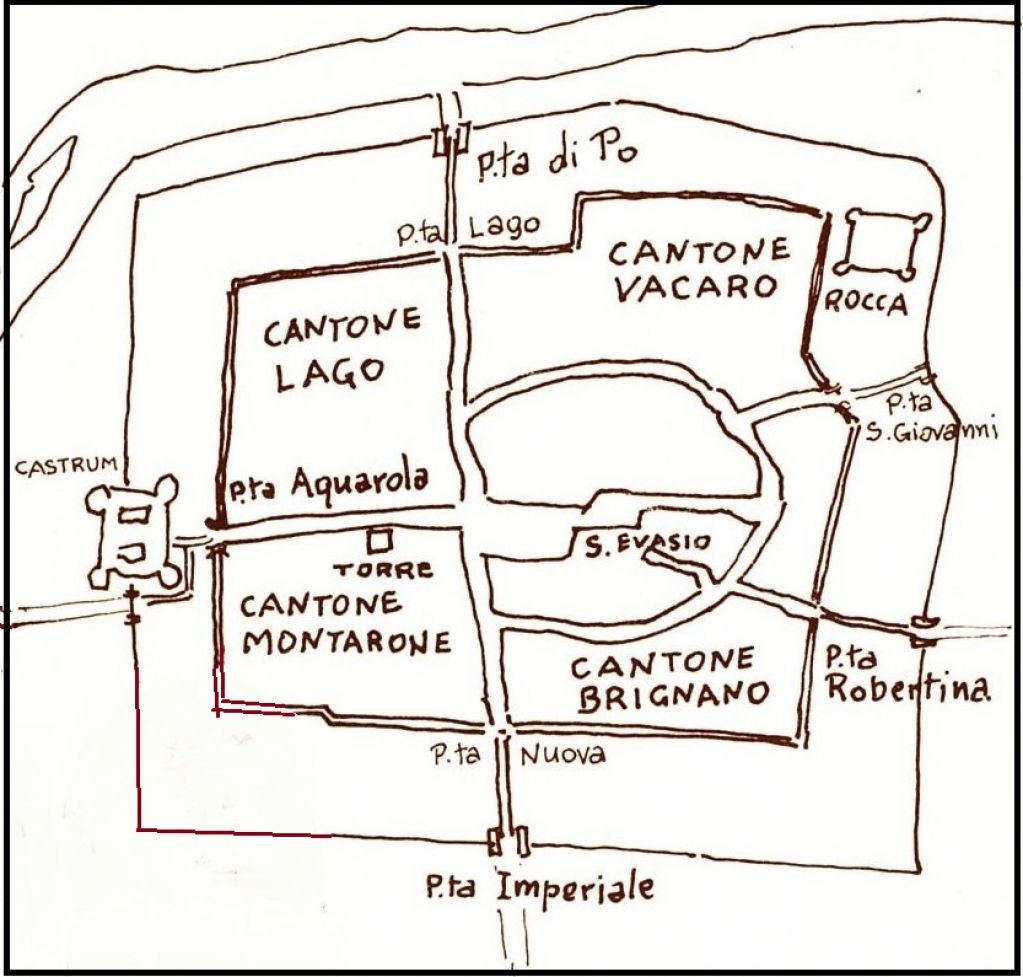 P.ta di Po
P.ta Lago
CANTONE
VACARO
ROCCA
CANTONE
LAGO
P.ta
S. Giovanni
CASTRUM
P.ta Aquarola
S. EVASIO
TORRE
CANTONE
MONTARONE
CANTONE
BRIGNANO
P.ta
Robentina
P.ta Nuova
P.ta Imperiale